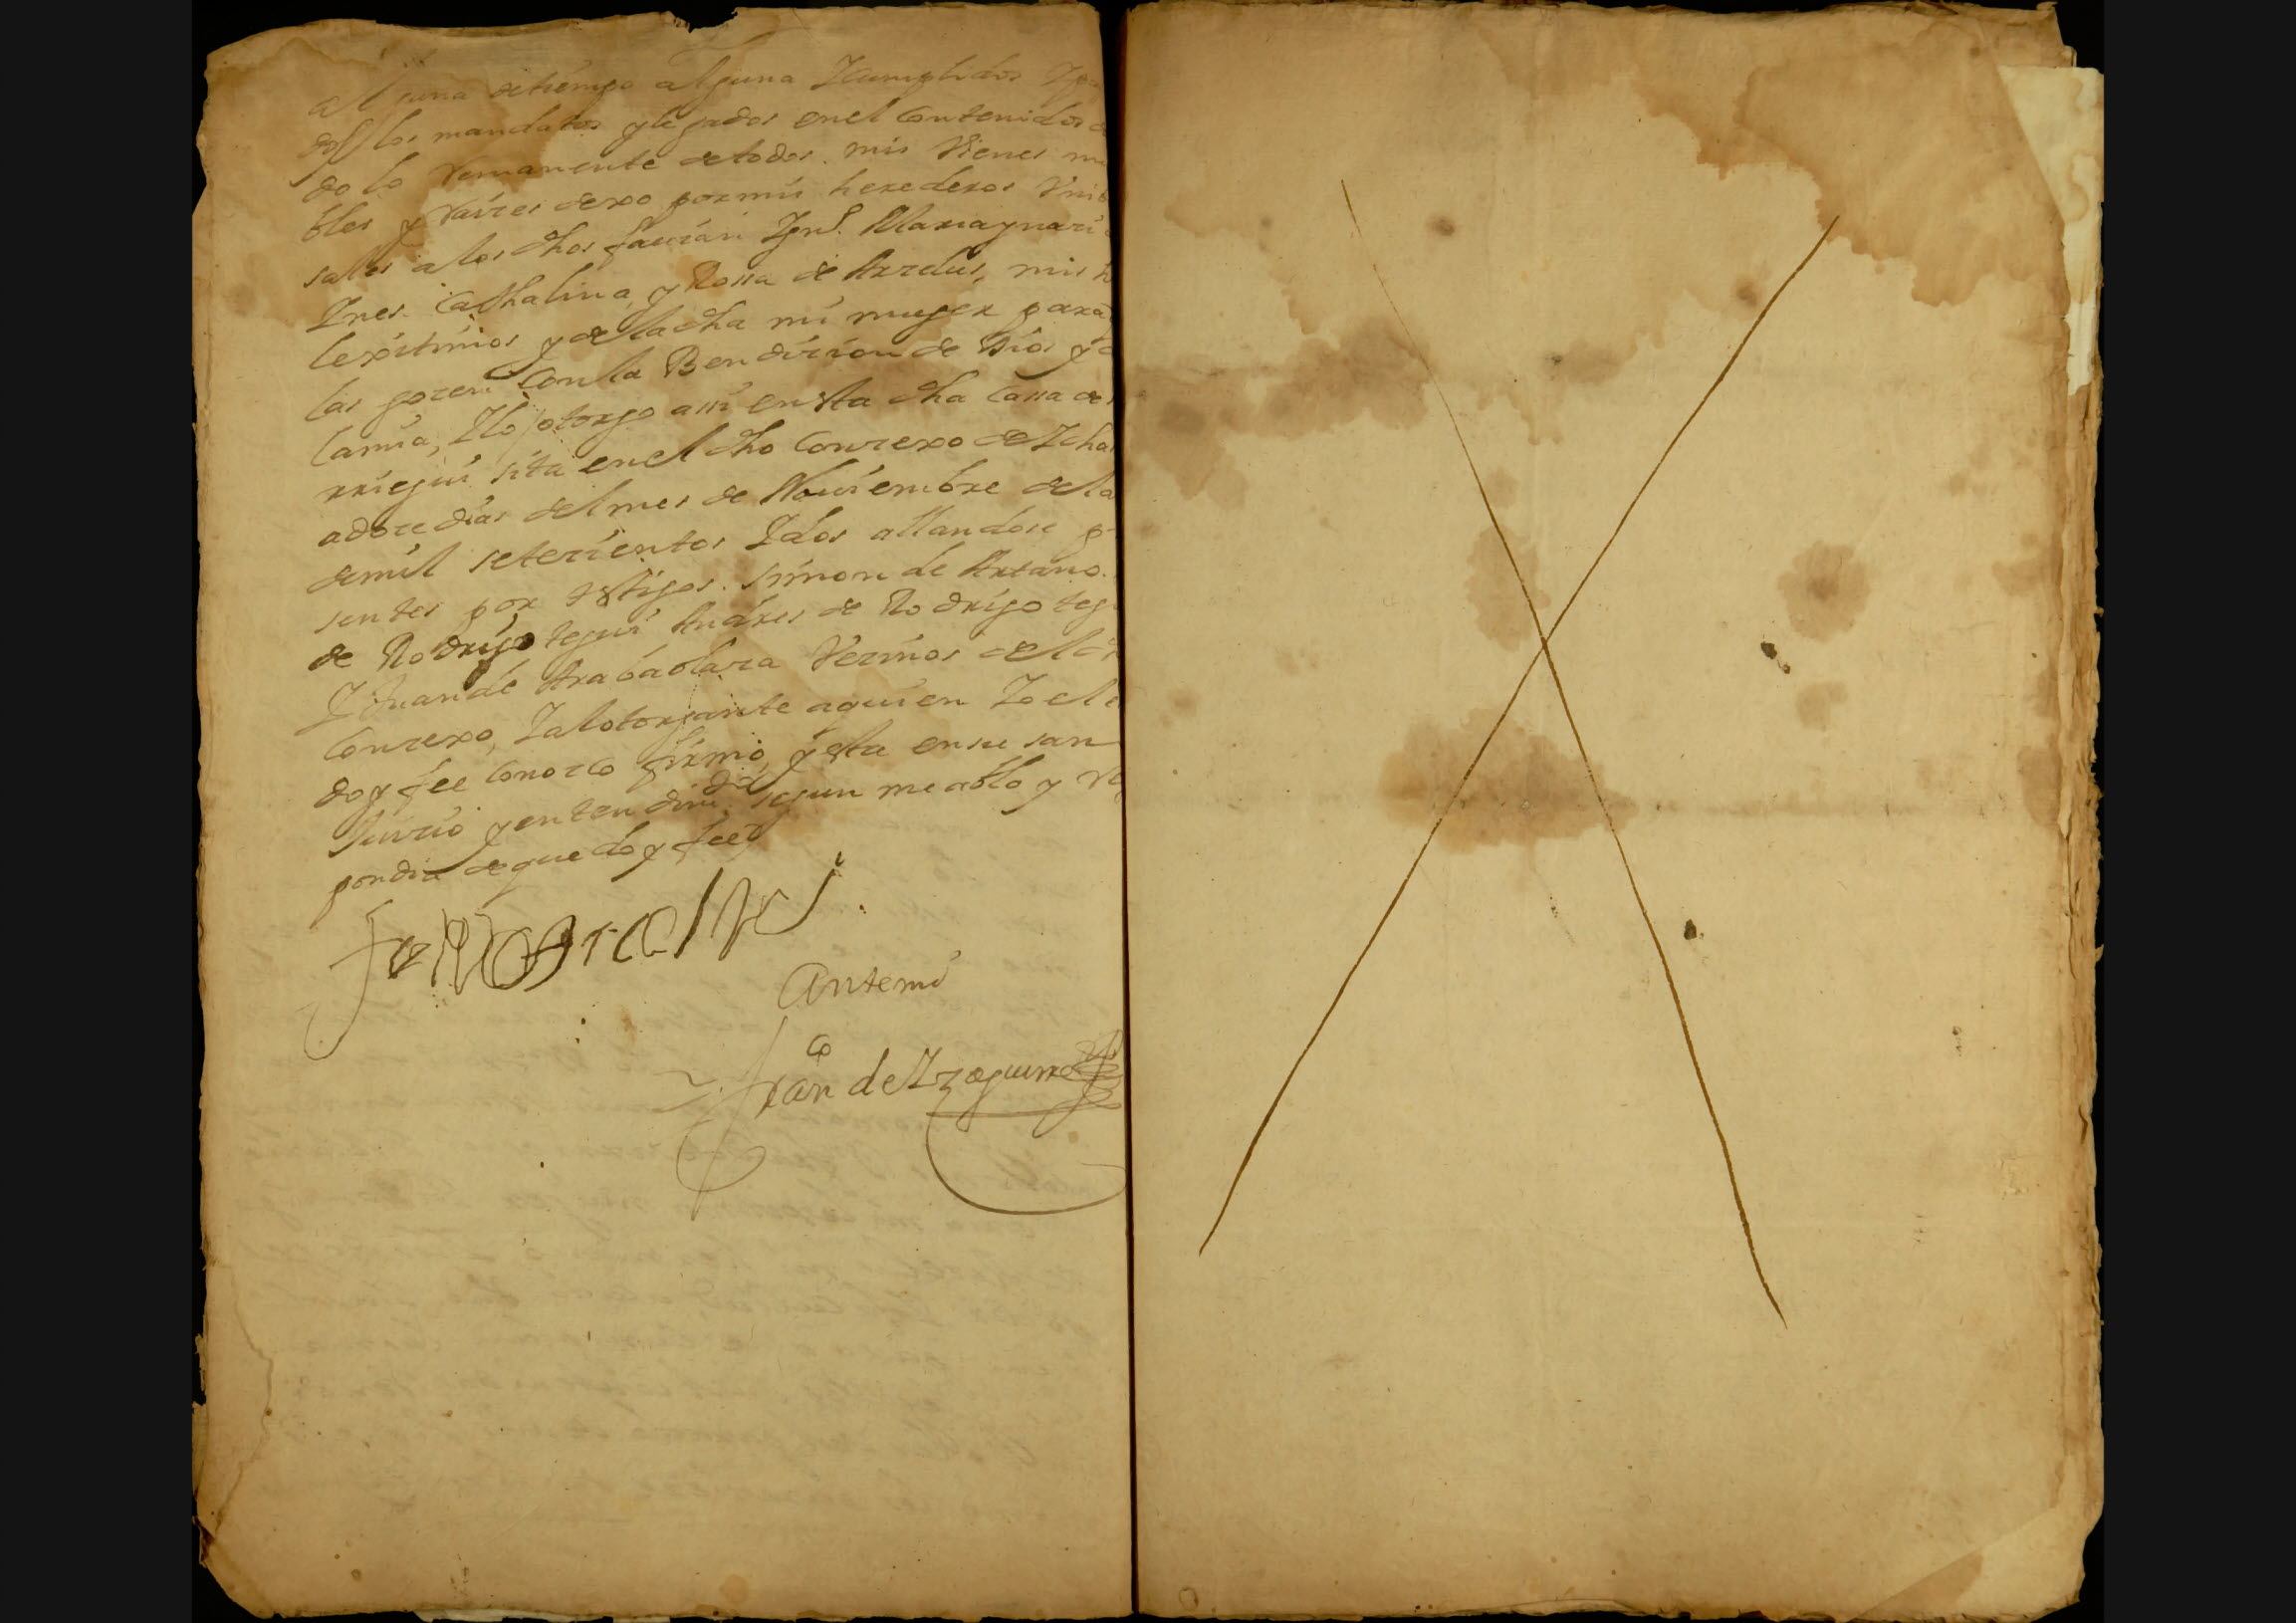 alguna de tiempo alguna Y cumplidos Y pa
dos los mandatos y legados en el Contenidos
do lo Remanente de todos mis Vienes mu
bles y Raizes dexo por mis herederos Vnib
sales a los dhos Y
Ynes Cathalina, y Rossa de mis h
lexitimos y de la dha mi muger para
las gozen Con la Bendizion de Dios y
la mia, Y lo otorgo assi en esta dha Cassa de
rriegui sita en el dho Conzexo de Icha
a doze dias del mes de Nouiembre del a
de mil setezientos Y dos allandose p
sentes por testigos Simon de
de Rodrigotegui Andres de Rodrigoteg
Y Juan de Arabaolaza Vezinos del d
Conzexo, Y al otorgante a quien Yo el e
doy fee Conozco firmo, y esta en su san
Juizio y entendimi segun me ablo y Re
pondio de que doy fee
Ante mi
franco de Yzaguirre